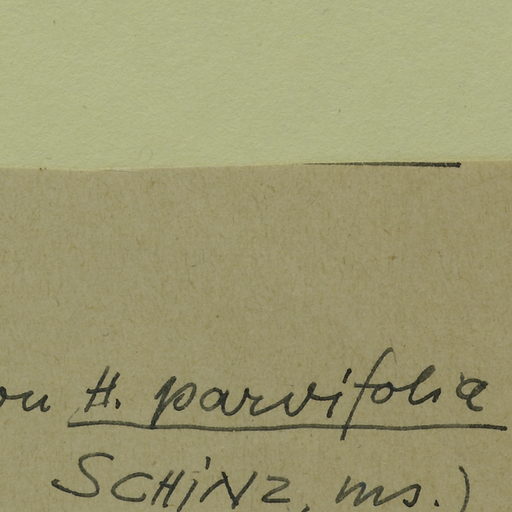 H. parvifolia
SCHINZ, ms.)